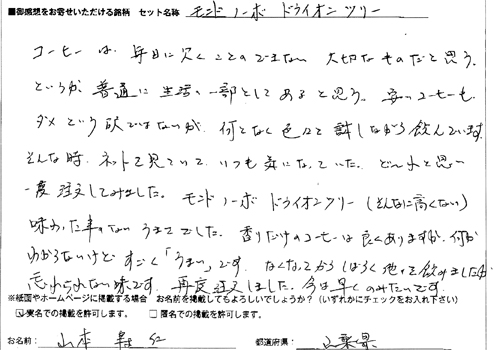 ■御感想をお寄せいただける銘柄 セット名称 モンドノーボ ドライオンツリー
コーヒーは、毎日に欠くことのできない 大切なものだと思う。
というか 普通に生活の一部としてあると思う。安いコーヒーも
ダメという訳ではないが 何となく色々と試しながら飲んでいます。
そんな時、ネットで見ていて、いつも気になっていた。どんなと思い
一度注文してみました。モンドノーボ ドライオンツリー（そんなに高くない）
味わった事のないうまさでした。香りだけのコーヒーは良くありますが、何か
わからないけど すごく「うまい」です。なくなってからしばらく他々を飲みましたが
忘れられない味です。再度注文しました。今は早くのみたいです。
※紙面やホームページに掲載する場合 お名前を掲載してもよろしいでしょうか？（いずれかにチェックをお入れ下さい）
☑実名での掲載を許可します。 □匿名での掲載を許可します。
お名前： 山本 都道府県： 千葉県